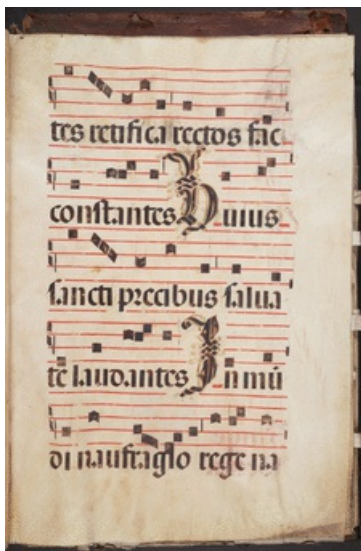 tes retifica rectos fac
constantes Huius
sancti precibus salua
te laudantes In mū
di naufragio rege na